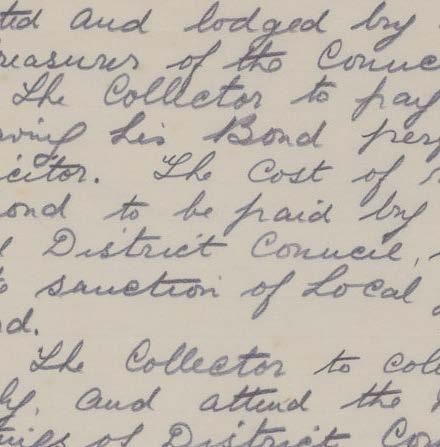 ted and lodged by
reasurer of the Counc
The Collector to pay
ving his Bond perf
icitor. The Cost of
ond to be paid by
l District Council,
e sanction of Local
rd.
The Collector to col
ly, and attend the
ings of District Co